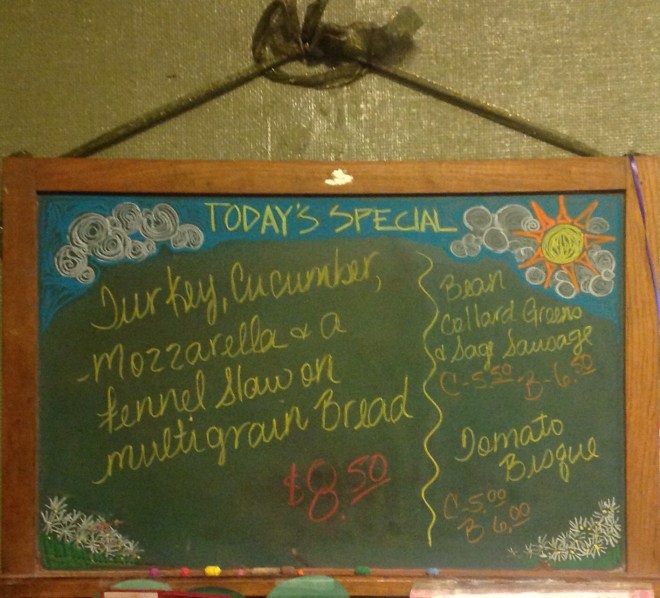 TODAY'S SPECIAL
Turkey, Cucumber,
Mozzarella & a
fennel slaw on
multigrain Bread
$8.50
Bean
Collard Greens
& Sage Sausage
C-5.50 B-6.50
Tomato
Bisque
C-5.00
B 6.00